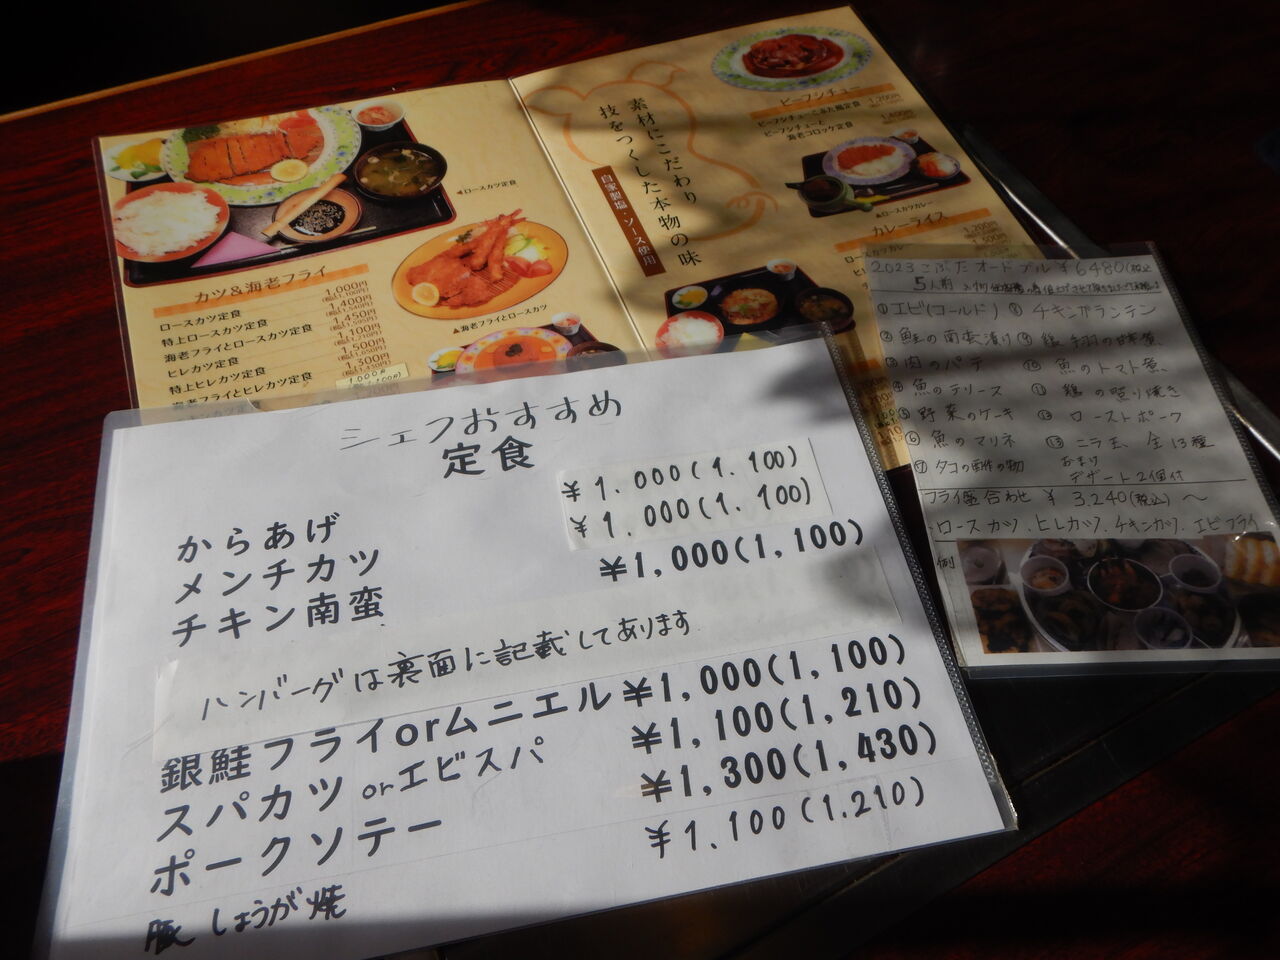 ◀ロースカツ定食
カツ＆海老フライ
ロースカツ定食 1,000円
(税込1,100円)
特上ロースカツ定食 1,400円
海老フライとロースカツ定食 1,450円
(税込1,595円)
ヒレカツ定食 1,100円
(税込1,210円)
特上ヒレカツ定食 1,500円
海老フライとヒレカツ定食 1,300円
(税込1,430円)
▲海老フライとロースカツ
素材にこだわり
技をつくした本物の味
自家製塩・ソース使用
ビーフシチュー
ビーフシチューこぶた鶏定食 1,200円
ビーフシチューと
海老コロッケ定食 1,400円
▲ロースカツカレー
カレーライス
ロースカツカレー 1,200円
2023 こぶた オードブル ¥6480(税込
5人前
①エビ(コールド) ⑧ チキンガランテン
② 鮭の南蛮漬け ⑨ 鶏手羽の甘酢煮
③ 肉のパテ ⑩ 魚のトマト煮
④ 魚のテリーヌ ⑪ 鶏の照り焼き
⑤ 野菜のケーキ ⑫ ローストポーク
⑥ 魚のマリネ ⑬ ニラ玉、全13種
⑦ タコの酢の物
デザート2個付
フライ盛合わせ ¥ 3,240(税込)〜
・ロースカツ、ヒレカツ、チキンカツ、エビフライ
例
シェフおすすめ
定食
からあげ ¥1.000(1.100)
メンチカツ ¥1.000(1.100)
チキン南蛮 ¥1,000(1,100)
ハンバーグは裏面に記載してあります
銀鮭フライorムニエル ¥1,000(1,100)
スパカツ orエビスパ ¥1,100(1,210)
ポークソテー ¥1,300(1,430)
豚しょうが焼 ¥1.100(1.210)